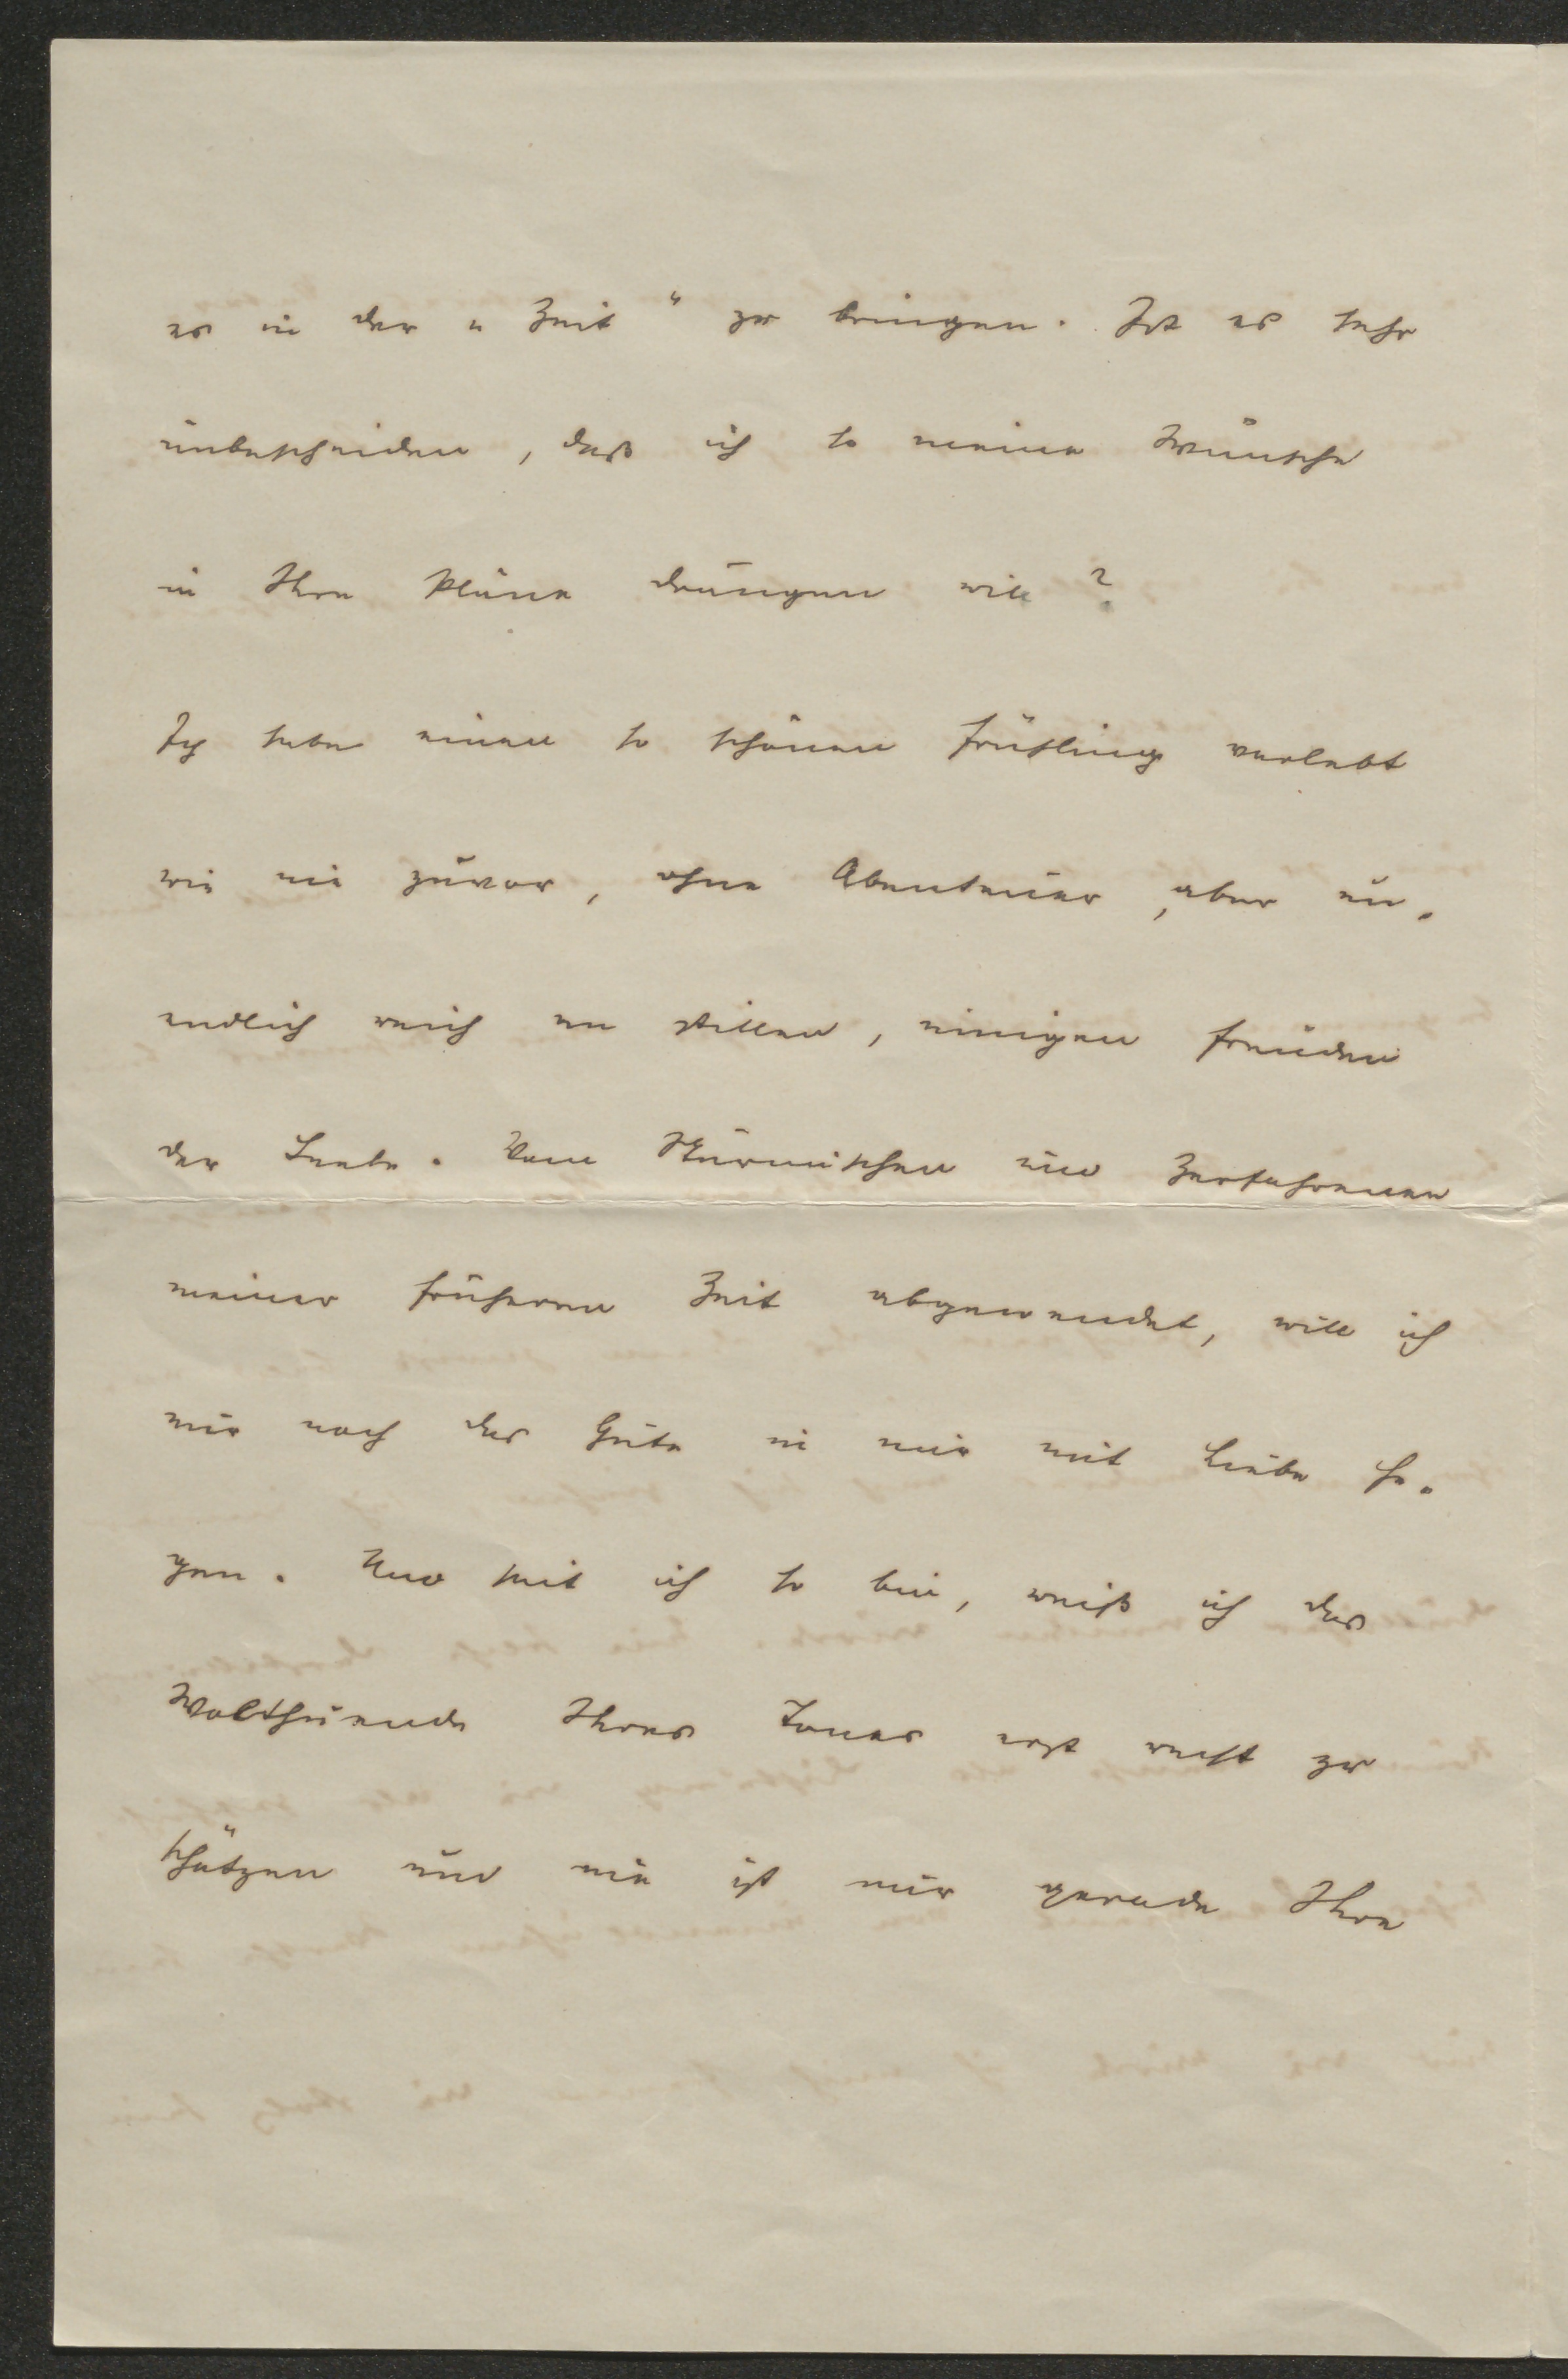 es in der „Zeit“ zu bringen. Ist es sehr
unbescheiden, daß ich so meine Wünsche
in Ihre Pläne drängen will?
Ich habe einen so schönen Frühling verlebt
wie nie zuvor, ohne Abenteuer, aber un-
endlich reich an stillen, innigen Freuden
der Seele. Vom Stürmischen und Zerfahrenen
meiner früheren Zeit abgewendet, will ich
nur noch das Gute in mir mit Liebe he-
gen. Und seit ich so bin, weiß ich das
Wolthuende Ihres Tones erst recht zu
schätzen und nie ist mir gerade Ihre